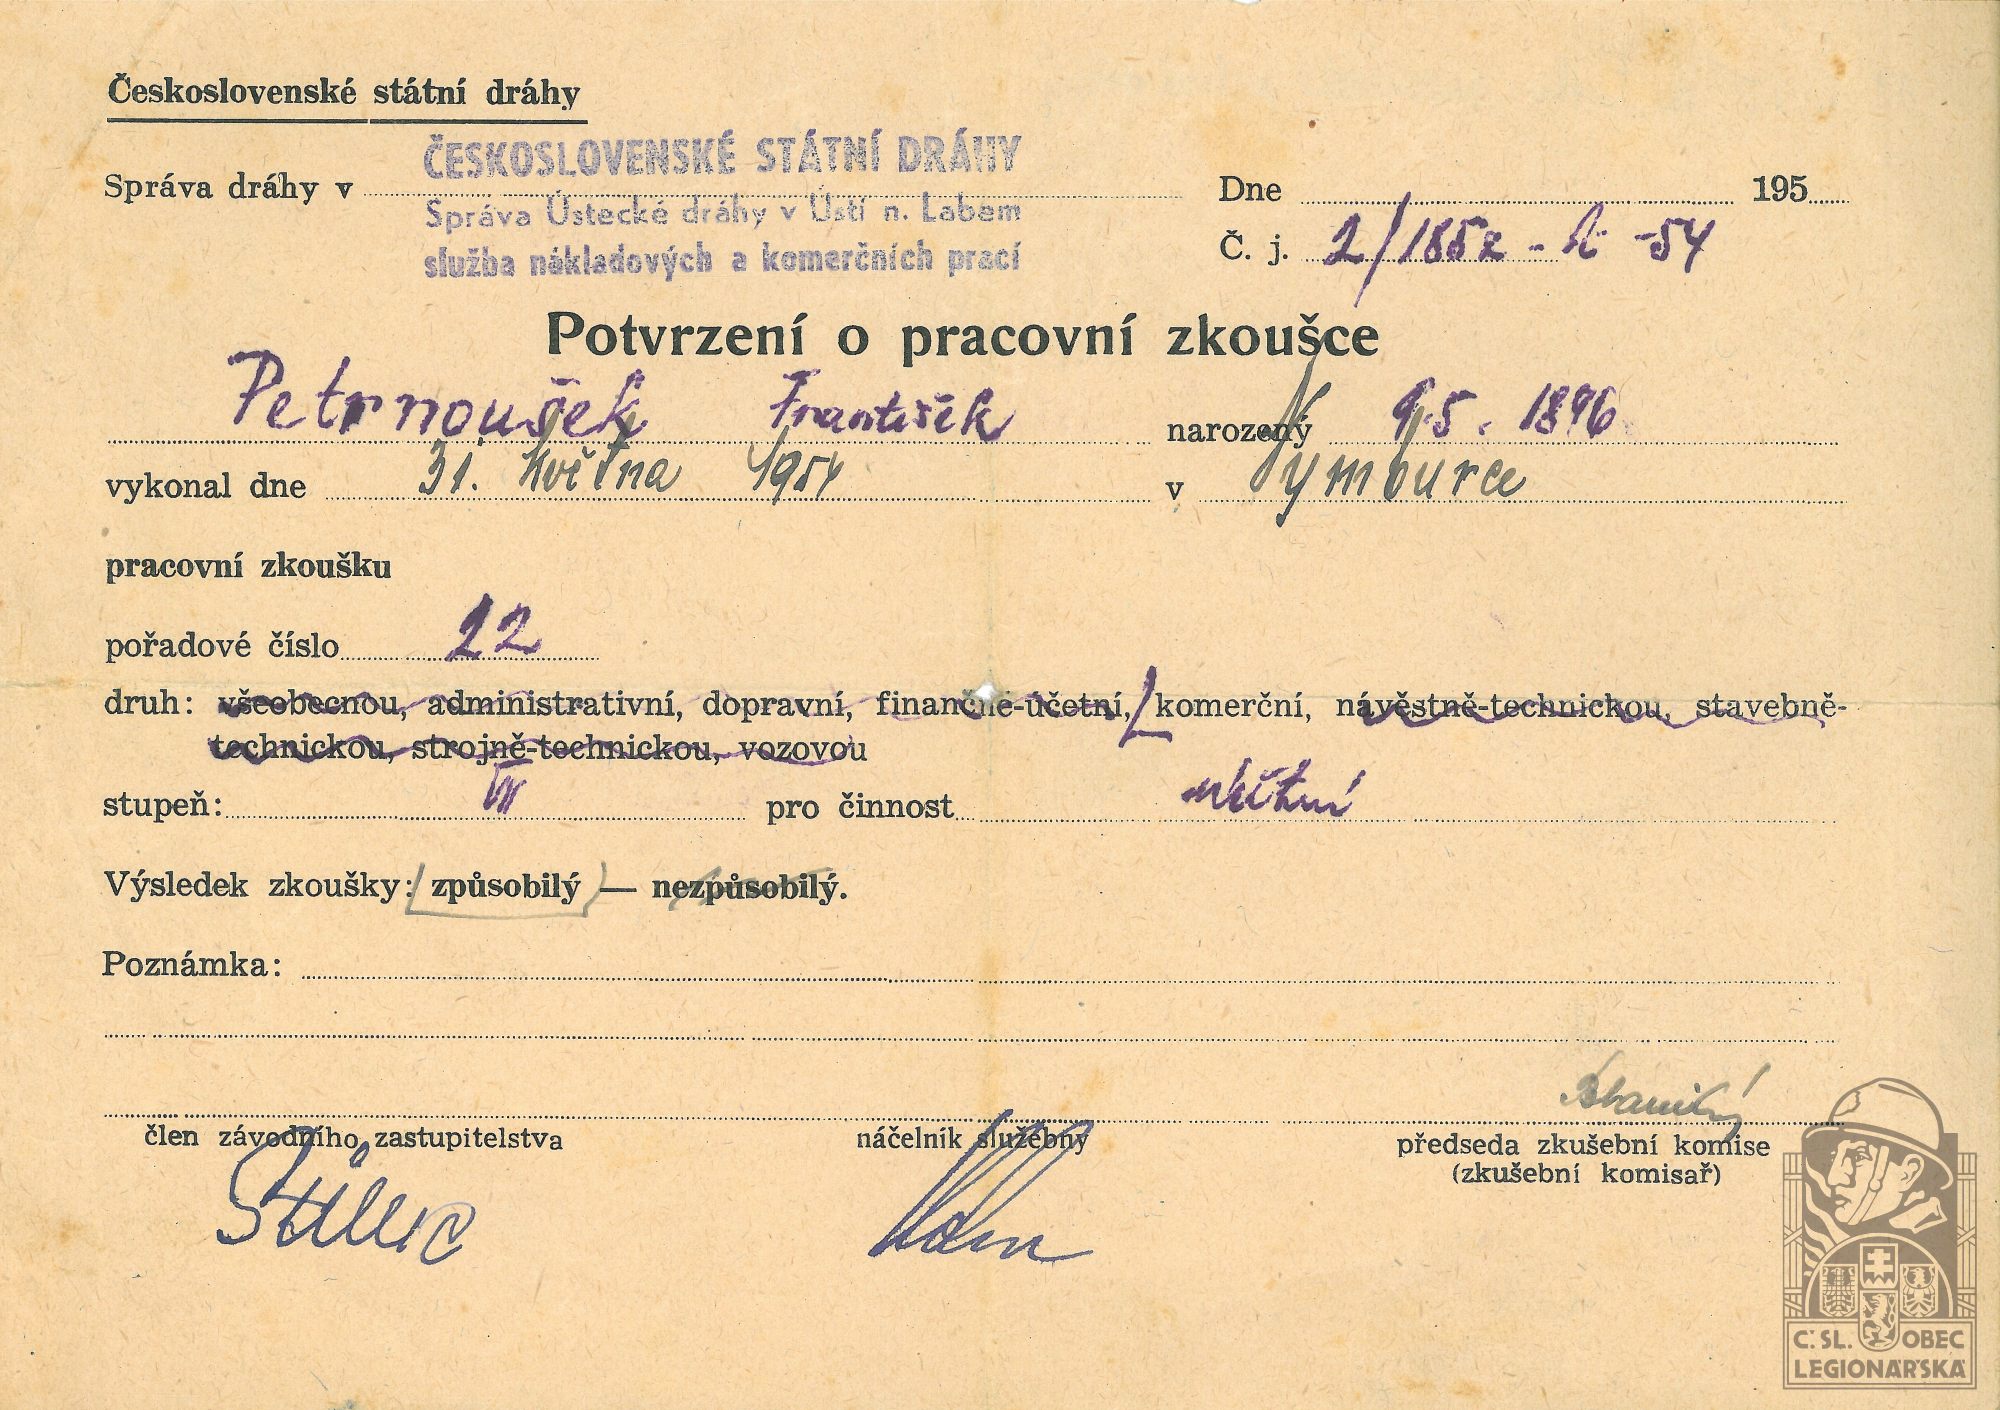 Československé státní dráhy
ČESKOSLOVENSKÉ STÁTNÍ DRÁHY
Správa dráhy v
Správa Ústecké dráhy v Ústí n. Labem
služba nákladových a komerčních prací
Dne 195
Č. j. 2/185z - -54
Potvrzení o pracovní zkoušce
Petrnoušek František narozený 9/5. 1896
vykonal dne 31. Května 1954 v Nymburce
pracovní zkoušku
pořadové číslo 22
druh: všeobecnou, administrativní, dopravní, finančně-účetní, komerční, návěstně-technickou, stavebně-
technickou, strojně-technickou, vozovou
stupeň: VII pro činnost
Výsledek zkoušky: způsobilý — nezpůsobilý.
Poznámka:
člen závodního zastupitelstva
náčelník služebny
předseda zkušební komise
(zkušební komisař)
Č. SL. OBEC
LEGIONÁŘSKÁ